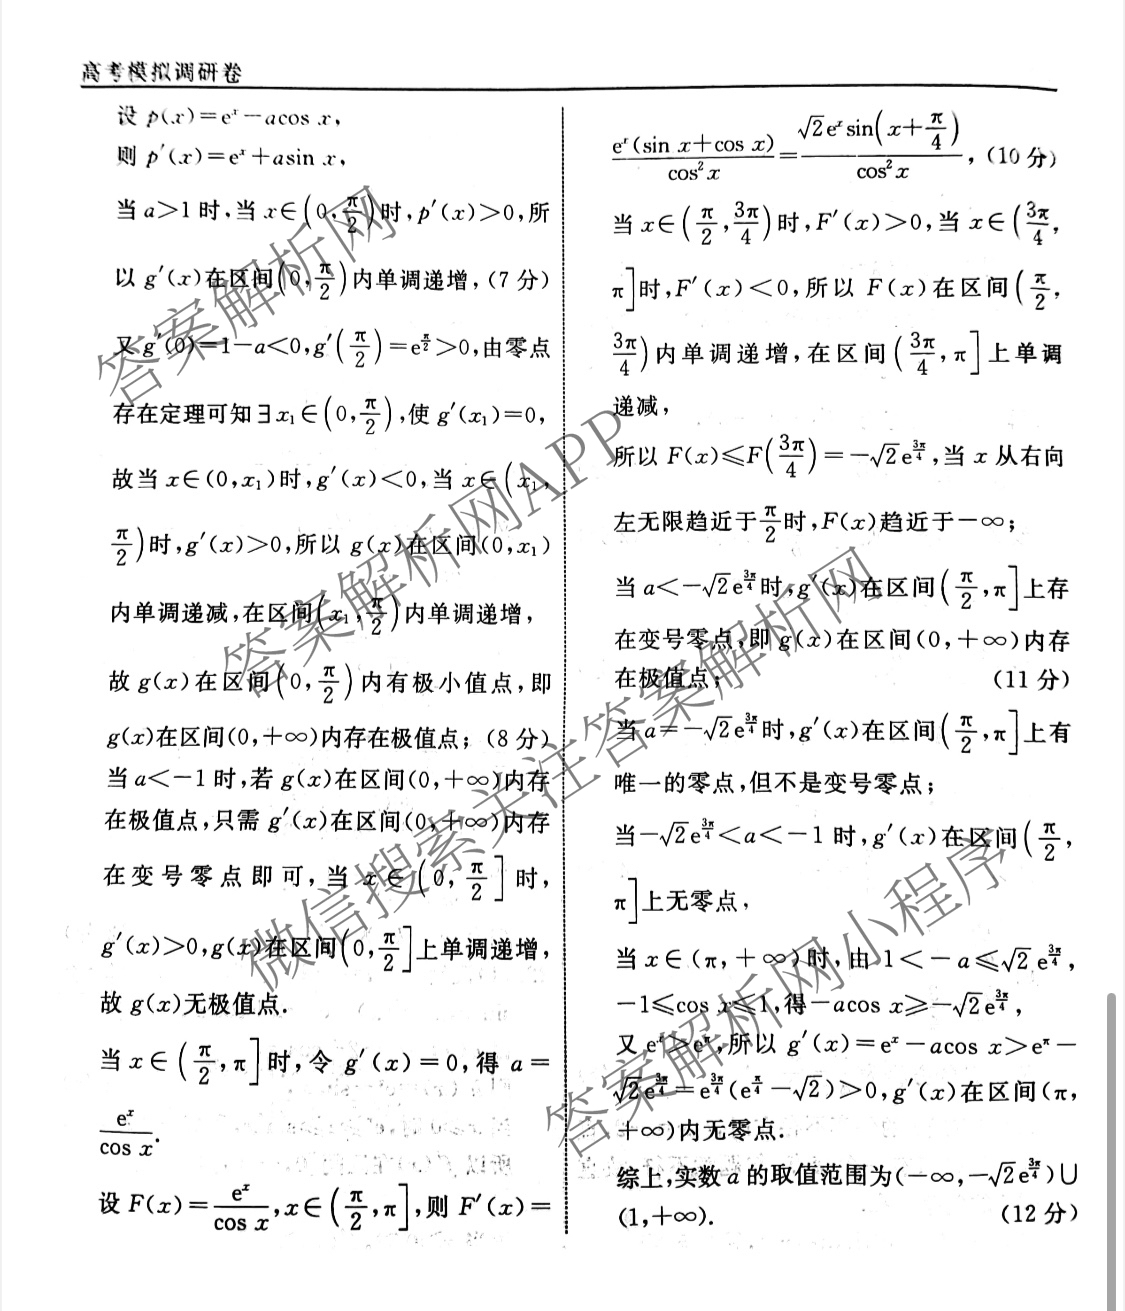 高考模拟调研卷
设 p(x)=eˣ-acos x,
则 p′(x)=eˣ+asin x,
当 a>1 时,当 x∈(0,π/2)时,p′(x)>0,所
以 g′(x)在区间(0,π/2)内单调递增,(7 分)
又 g′(0)=1-a<0,g′(π/2)=e^(π/2)>0,由零点
存在定理可知∃x₁∈(0,π/2),使 g′(x₁)=0,
故当 x∈(0,x₁)时,g′(x)<0,当 x∈(x₁,
π/2)时,g′(x)>0,所以 g(x)在区间(0,x₁)
内单调递减,在区间(x₁,π/2)内单调递增,
故 g(x)在区间(0,π/2)内有极小值点,即
g(x)在区间(0,+∞)内存在极值点;(8 分)
当 a<-1 时,若 g(x)在区间(0,+∞)内存
在极值点,只需 g′(x)在区间(0,+∞)内存
在变号零点即可,当 x∈(0,π/2]时,
g′(x)>0,g(x)在区间(0,π/2]上单调递增,
故 g(x)无极值点.
当 x∈(π/2,π]时,令 g′(x)=0,得 a=
eˣ/cos x.
设 F(x)=eˣ/cos x,x∈(π/2,π],则 F′(x)=
eˣ(sin x+cos x)/cos²x=√2eˣsin(x+π/4)/cos²x,(10 分)
当 x∈(π/2,3π/4)时,F′(x)>0,当 x∈(3π/4,
π]时,F′(x)<0,所以 F(x)在区间(π/2,
3π/4)内单调递增,在区间(3π/4,π]上单调
递减,
所以 F(x)≤F(3π/4)=-√2e^(3π/4),当 x 从右向
左无限趋近于π/2时,F(x)趋近于-∞;
当 a<-√2e^(3π/4)时,g′(x)在区间(π/2,π]上存
在变号零点,即 g(x)在区间(0,+∞)内存
在极值点; (11 分)
当 a=-√2e^(3π/4)时,g′(x)在区间(π/2,π]上有
唯一的零点,但不是变号零点;
当-√2e^(3π/4)<a<-1 时,g′(x)在区间(π/2,
π]上无零点,
当 x∈(π,+∞)时,由 1<-a≤√2e^(3π/4),
-1≤cos x≤1,得-acos x≥-√2e^(3π/4),
又 eˣ>e^π,所以 g′(x)=eˣ-acos x>e^π-
√2e^(3π/4)=e^(3π/4)(e^(π/4)-√2)>0,g′(x)在区间(π,
+∞)内无零点.
综上,实数 a 的取值范围为(-∞,-√2e^(3π/4))∪
(1,+∞). (12 分)
答案解析网
答案解析网APP
微信搜索关注答案解析网
答案解析网小程序